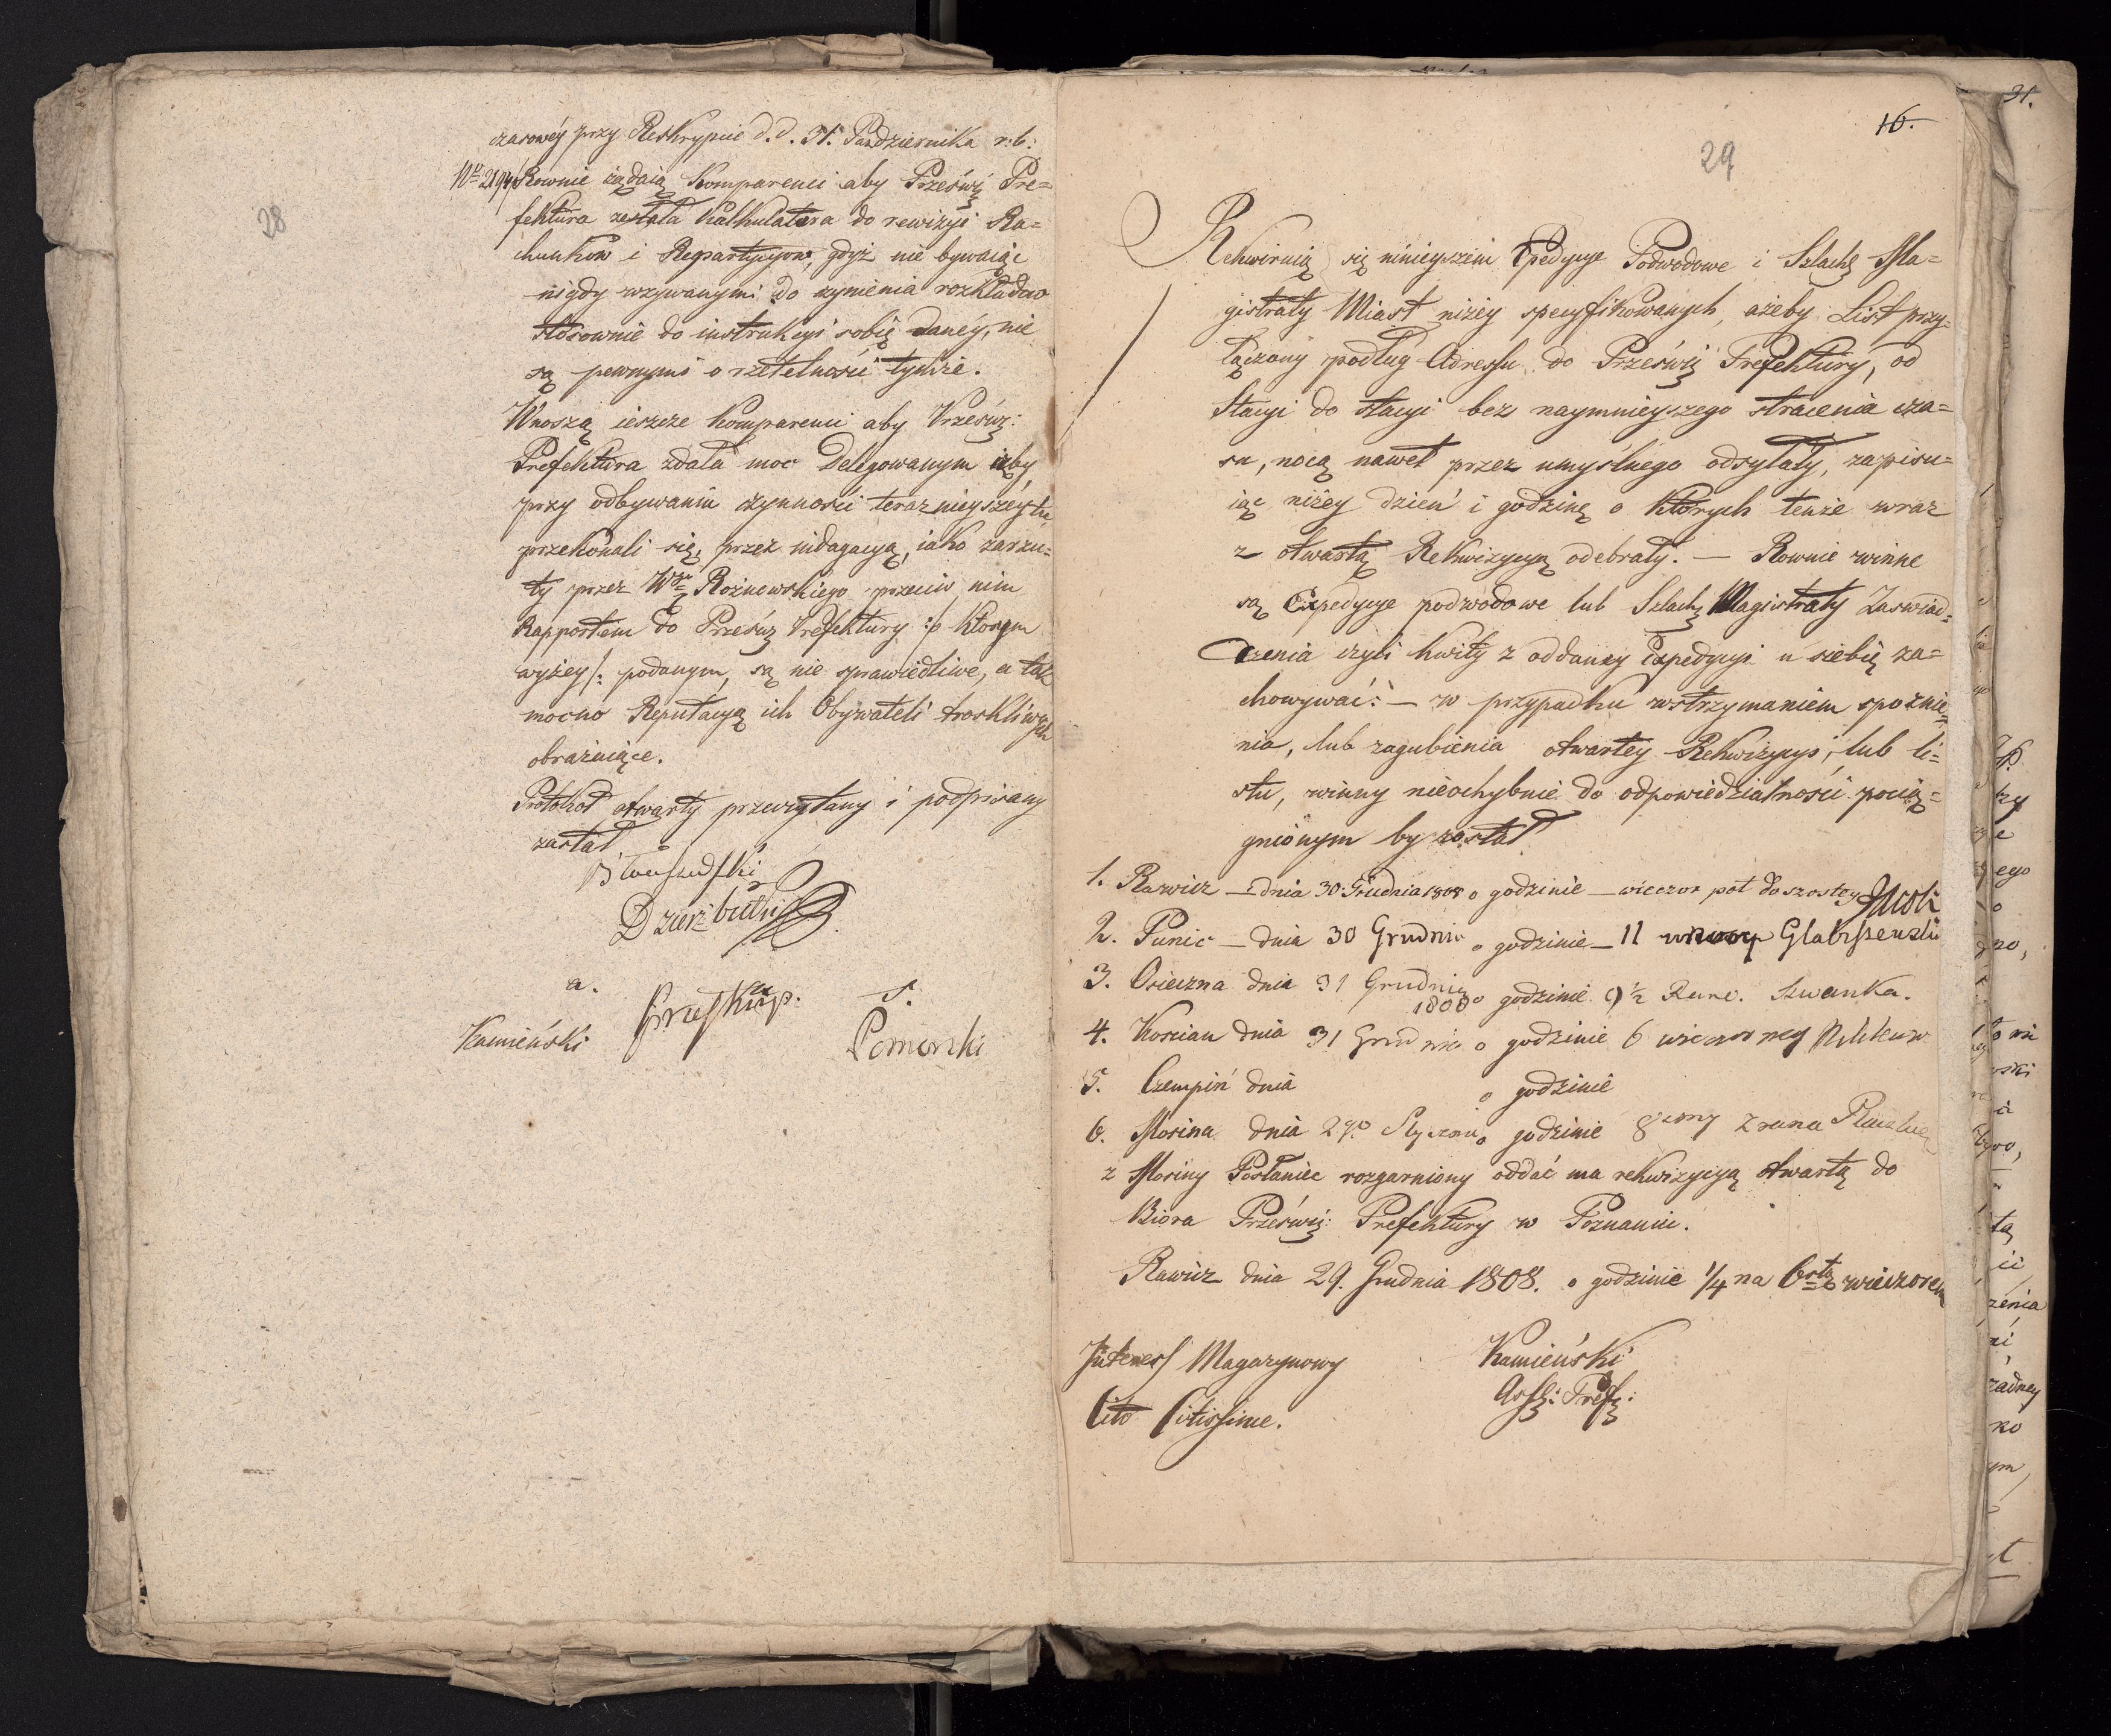 28
czasowéy przy Reskrypcie d.d. 31. Pazdziernika r: b:
Nro 2194 Rownie żądaią Komparenci aby Prześwię Pre=
fektura zesłała Kalkulatora do rewizyi Ra=
chunkow i Repartycyow, gdyż nie bywaiąc
nigdy wzywanymi do czynienia rozkładow
stosownie do instrukcyi sobie danéy, nie
są pewnymi o rzetelności tychże.
Wnoszą ieszcze Komparenci aby Prześwię:
Prefektura zdała moc Delegowanym iżby,
przy odbywaniu czynności teraznieyszéy tu
przekonali się, przez indagacyą, iako zarzu=
ty przez Wgo Rożnowskiego przeciw nim
Rapportem do Prześwię Prefektury :/o ktorym
wyżey/: podanym, są nie sprawiedliwe, a tak
mocno Reputacyą ich Obywateli troskliwych
obrażaiące.
Protokoł otwarty przeczytany i podpisany
został
Dzierzbicki
a. S.
Kamieński Pomorski
16.
29
Rekwiruią się ninieyszém Expedycye Podwodowe i Szlachę Ma=
gistraty Miast niżéy specyfikowanych, ażeby List przy=
łączony podług Adressu do Prześwię Prefektury, od
Stacyi do stacyi bez naymnieyszego stracenia cza=
su, nocą nawet przez umyślnego odsyłały, zapisu=
iąc niżey dzień i godzinę o których tenże wraz
z otwartą Rekwizycyą odebrały. — Rownie winne
są Expedycye podwodowe lub Szlachę Magistraty Zaswiad=
czenia czyli kwity z oddaney Expedycyi u siebie za=
chowywać: — w przypadku wstrzymaniem spoznie=
nia, lub zagubienia otwartey Rekwizycyi, lub li=
stu, winny niéochybnie do odpowiedzialności pocią=
gnionym by został
1. Rawicz — dnia 30 Grudnia 1808 o godzinie — wieczor poł do szostey
2. Punic — dnia 30 Grudnia o godzinie — 11 w nocy
3. Osieczna dnia 31 Grudnia 1808 o godzinie 9 ½ Rano. Szwanka.
4. Koscian dnia 31 Grudnia o godzinie 6 wieczorney
5. Czempiń dnia o godzinie
6. Mosina dnia 2go Stycznia o godzinie 8smy z rana
z Mosiny Posłaniec rozgarniony oddać ma rekwizycyą otwartą do
Biora Prześwię: Prefektury w Poznaniu.
Rawicz dnia 29. Grudnia 1808. o godzinie ¼ na 6stą wieczorem
Interess Magazynowy Kamieński
Cito Citissime. Assę: Prefę:
31.